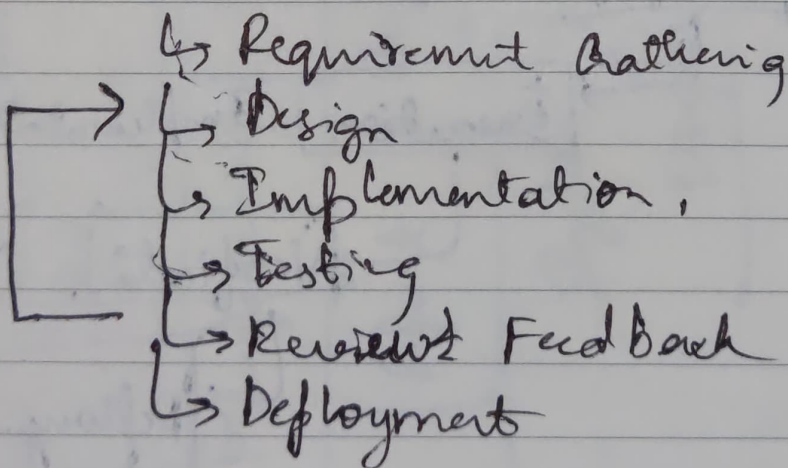 Requirement Gathering
Design
Implementation,
Testing
Review & FeedBack
Deployment